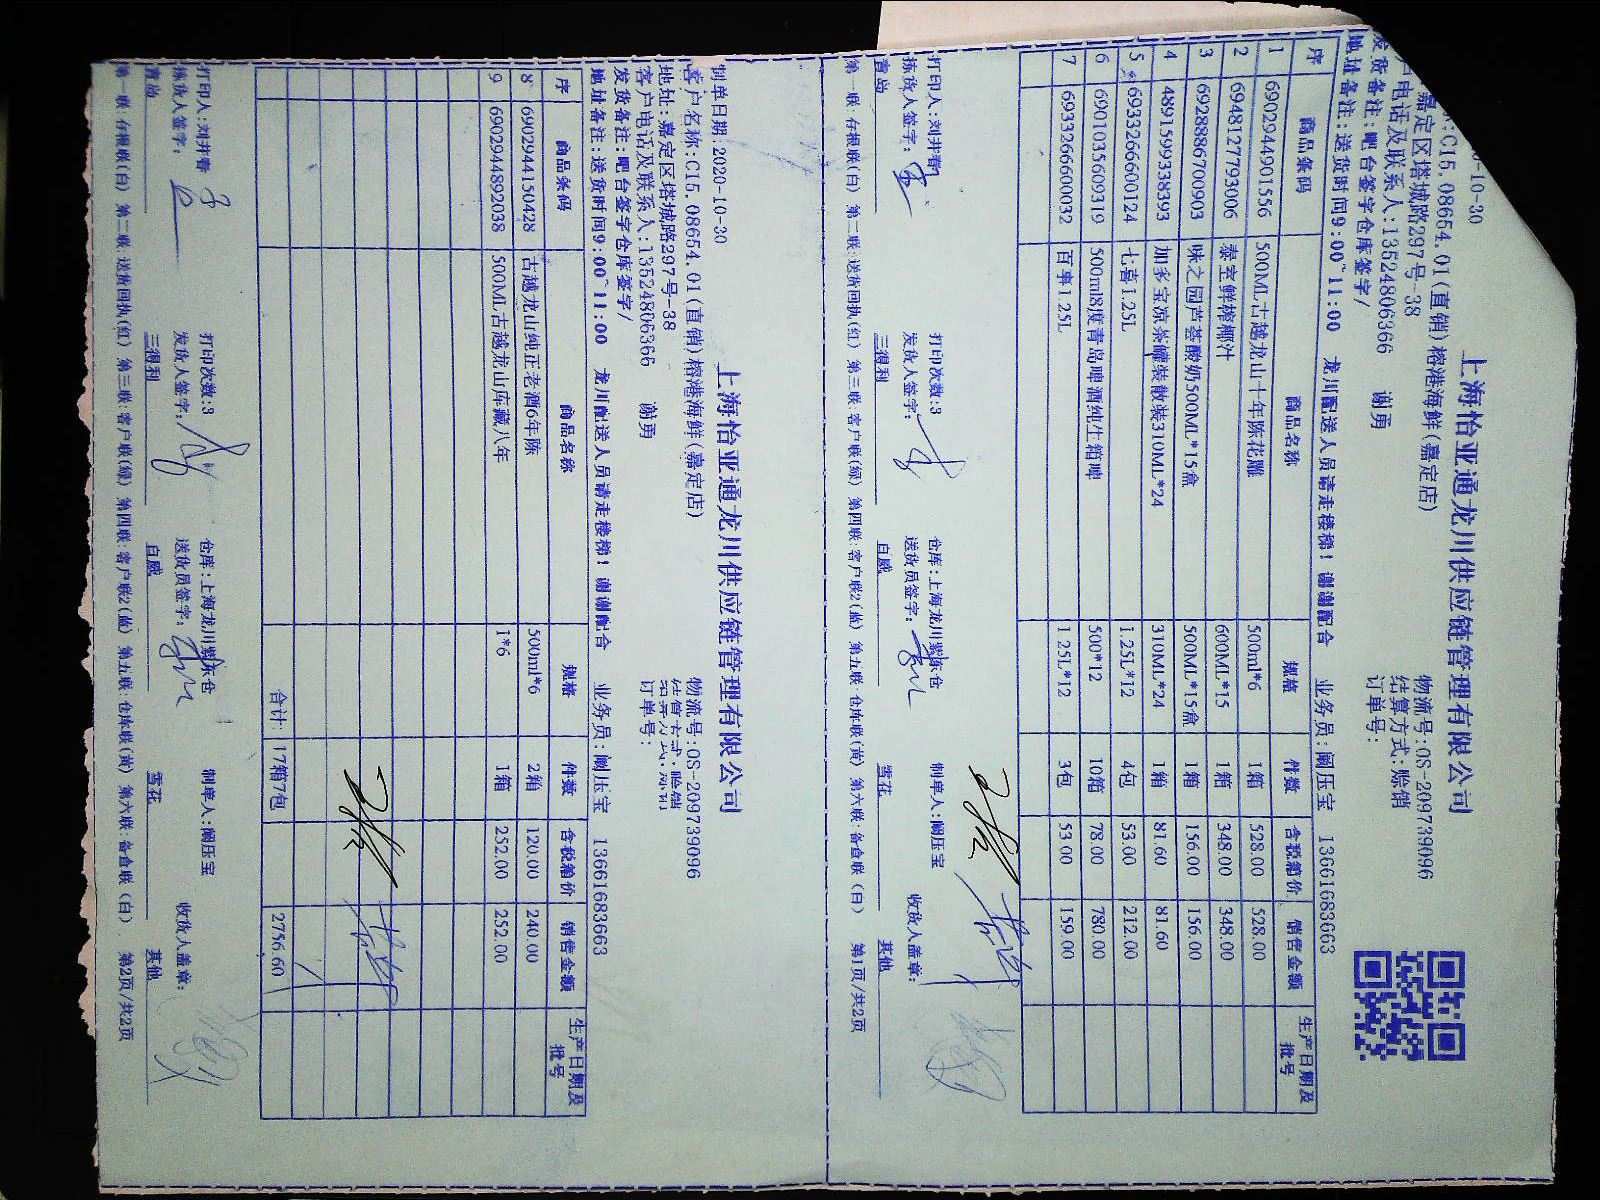 上海怡亚通龙川供应链管理有限公司
0-10-30
:C15.08654.01(直销)榕港海鲜(嘉定店) 物流号:OS-209739096
嘉定区塔城路297号-38 结算方式:赊销
户电话及联系人:13524806366 谢勇 订单号:
发货备注:吧台签字仓库签字/
地址备注:送货时间9:00~11:00 龙川配送人员请走楼梯!谢谢配合 业务员:阚压宝 13661683663
序 商品条码 商品名称 规格 件数 含税箱价 销售金额 生产日期及批号
1 6902944901556 500ML古越龙山十年陈花雕 500ml*6 1箱 528.00 528.00
2 6948127793006 泰室鲜榨椰汁 600ML*15 1箱 348.00 348.00
3 6928886700903 味之园芦荟酸奶500ML*15盒 500ML*15盒 1箱 156.00 156.00
4 4891599338393 加多宝凉茶罐装散装310ML*24 310ML*24 1箱 81.60 81.60
5 6933266600124 七喜1.25L 1.25L*12 4包 53.00 212.00
6 6901035609319 500ml8度青岛啤酒纯生箱啤 500*12 10箱 78.00 780.00
7 6933266600032 百事1.25L 1.25L*12 3包 53.00 159.00
打印人:刘井春 打印次数:3 仓库:上海龙川紫东仓 制单人:阚压宝
拣货人签字: 发货人签字: 送货员签字: 收货人盖章:
青岛 三得利 百威 雪花 其他
第一联:存根联(白) 第二联:送货回执(红) 第三联:客户联(绿) 第四联:客户联2(蓝) 第五联:仓库联(黄) 第六联:备查联(白) 第1页/共2页
上海怡亚通龙川供应链管理有限公司
制单日期:2020-10-30
客户名称:C15.08654.01(直销)榕港海鲜(嘉定店) 物流号:OS-209739096
地址:嘉定区塔城路297号-38 结算方式:赊销
客户电话及联系人:13524806366 谢勇 订单号:
发货备注:吧台签字仓库签字/
地址备注:送货时间9:00~11:00 龙川配送人员请走楼梯!谢谢配合 业务员:阚压宝 13661683663
序 商品条码 商品名称 规格 件数 含税箱价 销售金额 生产日期及批号
8 6902944150428 古越龙山纯正老酒6年陈 500ml*6 2箱 120.00 240.00
9 6902944892038 500ML古越龙山库藏八年 1*6 1箱 252.00 252.00
合计: 17箱7包 2756.60
打印人:刘井春 打印次数:3 仓库:上海龙川紫东仓 制单人:阚压宝
拣货人签字: 发货人签字: 送货员签字: 收货人盖章:
青岛 三得利 百威 雪花 其他
第一联:存根联(白) 第二联:送货回执(红) 第三联:客户联(绿) 第四联:客户联2(蓝) 第五联:仓库联(黄) 第六联:备查联(白) 第2页/共2页